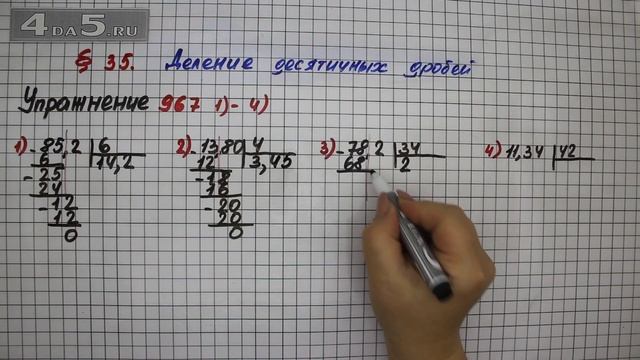 4DA5.RU
§ 35. Деление десятичных дробей
Упражнение 967 1)-4)
1) -85,2 | 6
6 | 14,2
-25
24
-12
12
0
2) -13,80 | 4
12 | 3,45
-18
16
-20
20
0
3) -78,2 | 34
68 | 2
4) 11,34 | 42